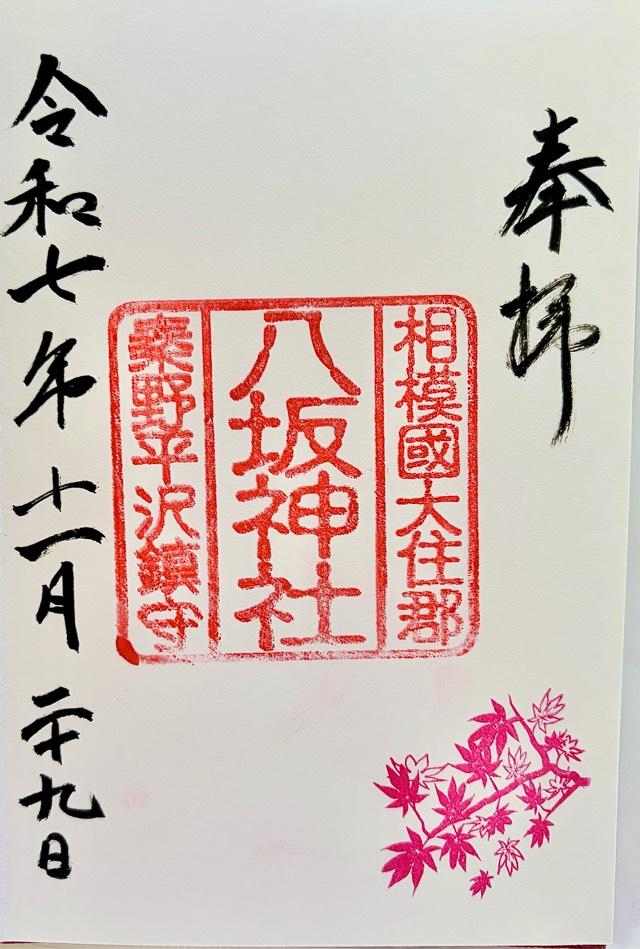 奉拝
相模國大住郡
八坂神社
秦野平沢鎮守
令和七年十一月二十九日